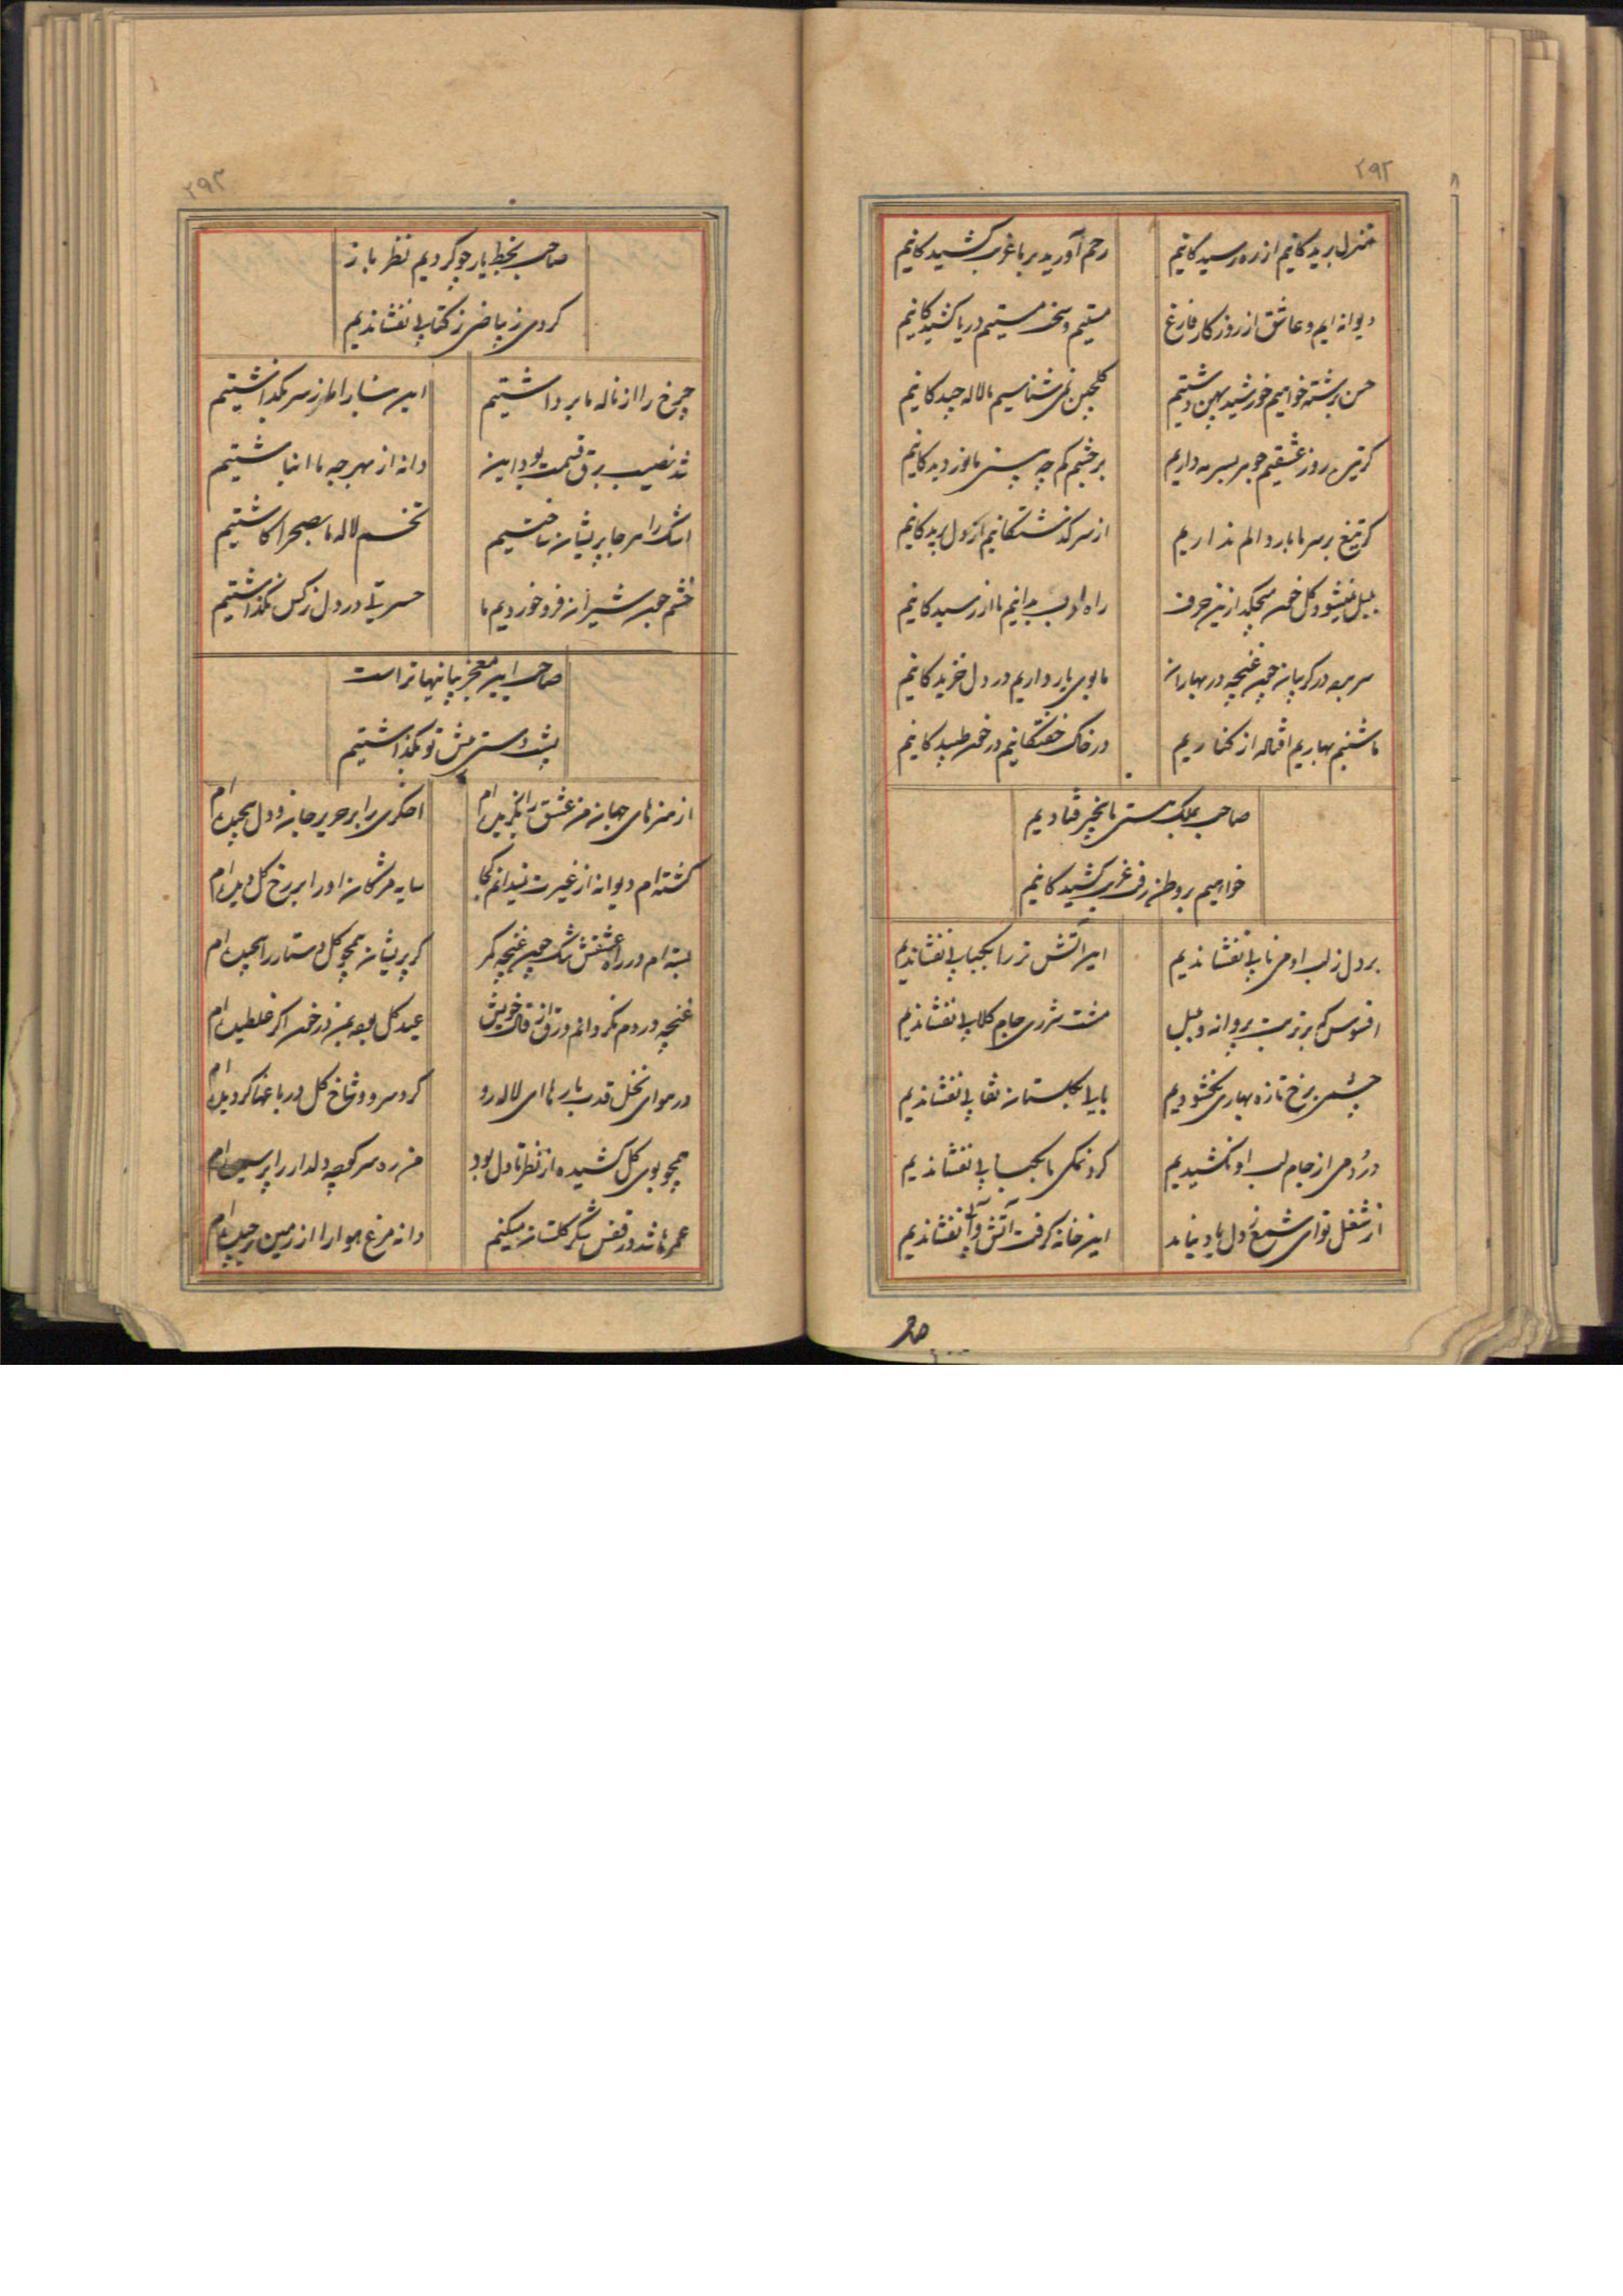 ۲۹۲
منزل بریدکانیم از ره رسیدکانیم
رحم آورید بر ما غربت کشیدکانیم
دیوانه ایم و عاشق از روز کار فارغ
مستیم و سخت مستیم دریا کشیدکانیم
حسن برشته خواهیم خورشید بهین داشتیم
کلچین نمی شناسیم ما لاله چیدکانیم
روز عشقیم جوهر بسرمه داریم
بر خشم کم چه بینی ما نوز دیدکانیم
کر تیغ بر سر ما بارد الم نداریم
از سر کذشتکانیم از دل بریدکانیم
بلبل نمیشود کل خون میچکد ازین حرف
راه ادب بدانیم ما نارسیدکانیم
سر برده در کریبان چون غنچه در بهاران
ما بوی یار داریم در دل خزیدکانیم
ما شبنم بهاریم افتاله از کناریم
در خاک خفتکانیم در خون طپیدکانیم
صاحب بملک هستی ناپخچیر فتادیم
خواهیم بر وطن رفت غربت کشیدکانیم
بر دل ز لب او می نابی نفشاندیم
این آتش تر را بکبابی نفشاندیم
افسوس که بر تربت پروانه و بلبل
مشت شرری جام کلابی نفشاندیم
چشمی برخ تازه بهاری نکشودیم
با یاد کلستان نقابی نفشاندیم
دُردِ می از جام لب او نکشیدیم
کرد نمکی ما بکبابی نفشاندیم
از شغل تو ای شمع ز دل یاد نماند
این خانه کرفت آتش و آبی نفشاندیم
صاحب
۲۹۳
صاحب بخط یار چو کردیم نظر باز
کردی ز بیاضی ز کتابی نفشاندیم
چرخ را از ناله ما برداشتیم
این سنار را طرز سر نکذاشتیم
شد نصیب برق قیمت بود این
دانه از بهر چه ما انباشتیم
اشک را هر جا پریشان ساختیم
تخم لاله ما بصحرا کاشتیم
خشم چون شیران فرو خوردیم ما
حسرتی در دل نرکس نکذاشتیم
صاحب این معجز بیانیها تراست
پشت دستی پیش تو بکذاشتیم
از هنرهای جهان من عشق را بکزیده ام
اخکری را بر حریر جان و دل پیچیده ام
کشته ام دیوانه از غیرت نمیدانم کجا
سایه مژکان او را بر رخ کل دیده ام
بسته ام در راه عشقش تنک چون غنچه کمر
کر پریشان همچو کل دستار را پیچیده ام
غنچه دردم نکردانم ورق از قال خویش
عید کل بود بمن در خون اکر غلطیده ام
در هوای نخل قدت بارها ای لاله رو
کرد سرو و شاخ کل در باغها کردیده ام
همچو بوی کل کشیده از نظر تا دل بود
من ره سر کوچه دلدار را پرسیده ام
عمرها شد در قفس شکر کلستان میکنم
دانه مرغ هوا را از زمین برچیده ام